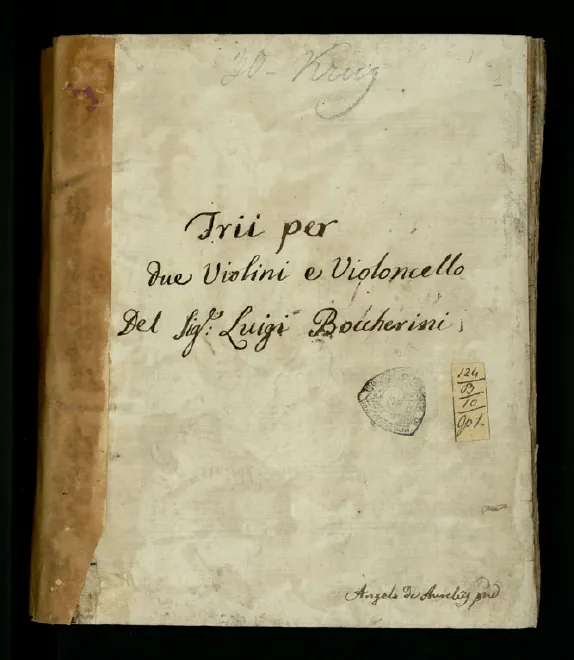 Trii per
due Violini e Violoncello
Del Sig.r Luigi Boccherini
124
B
10
Angelo de